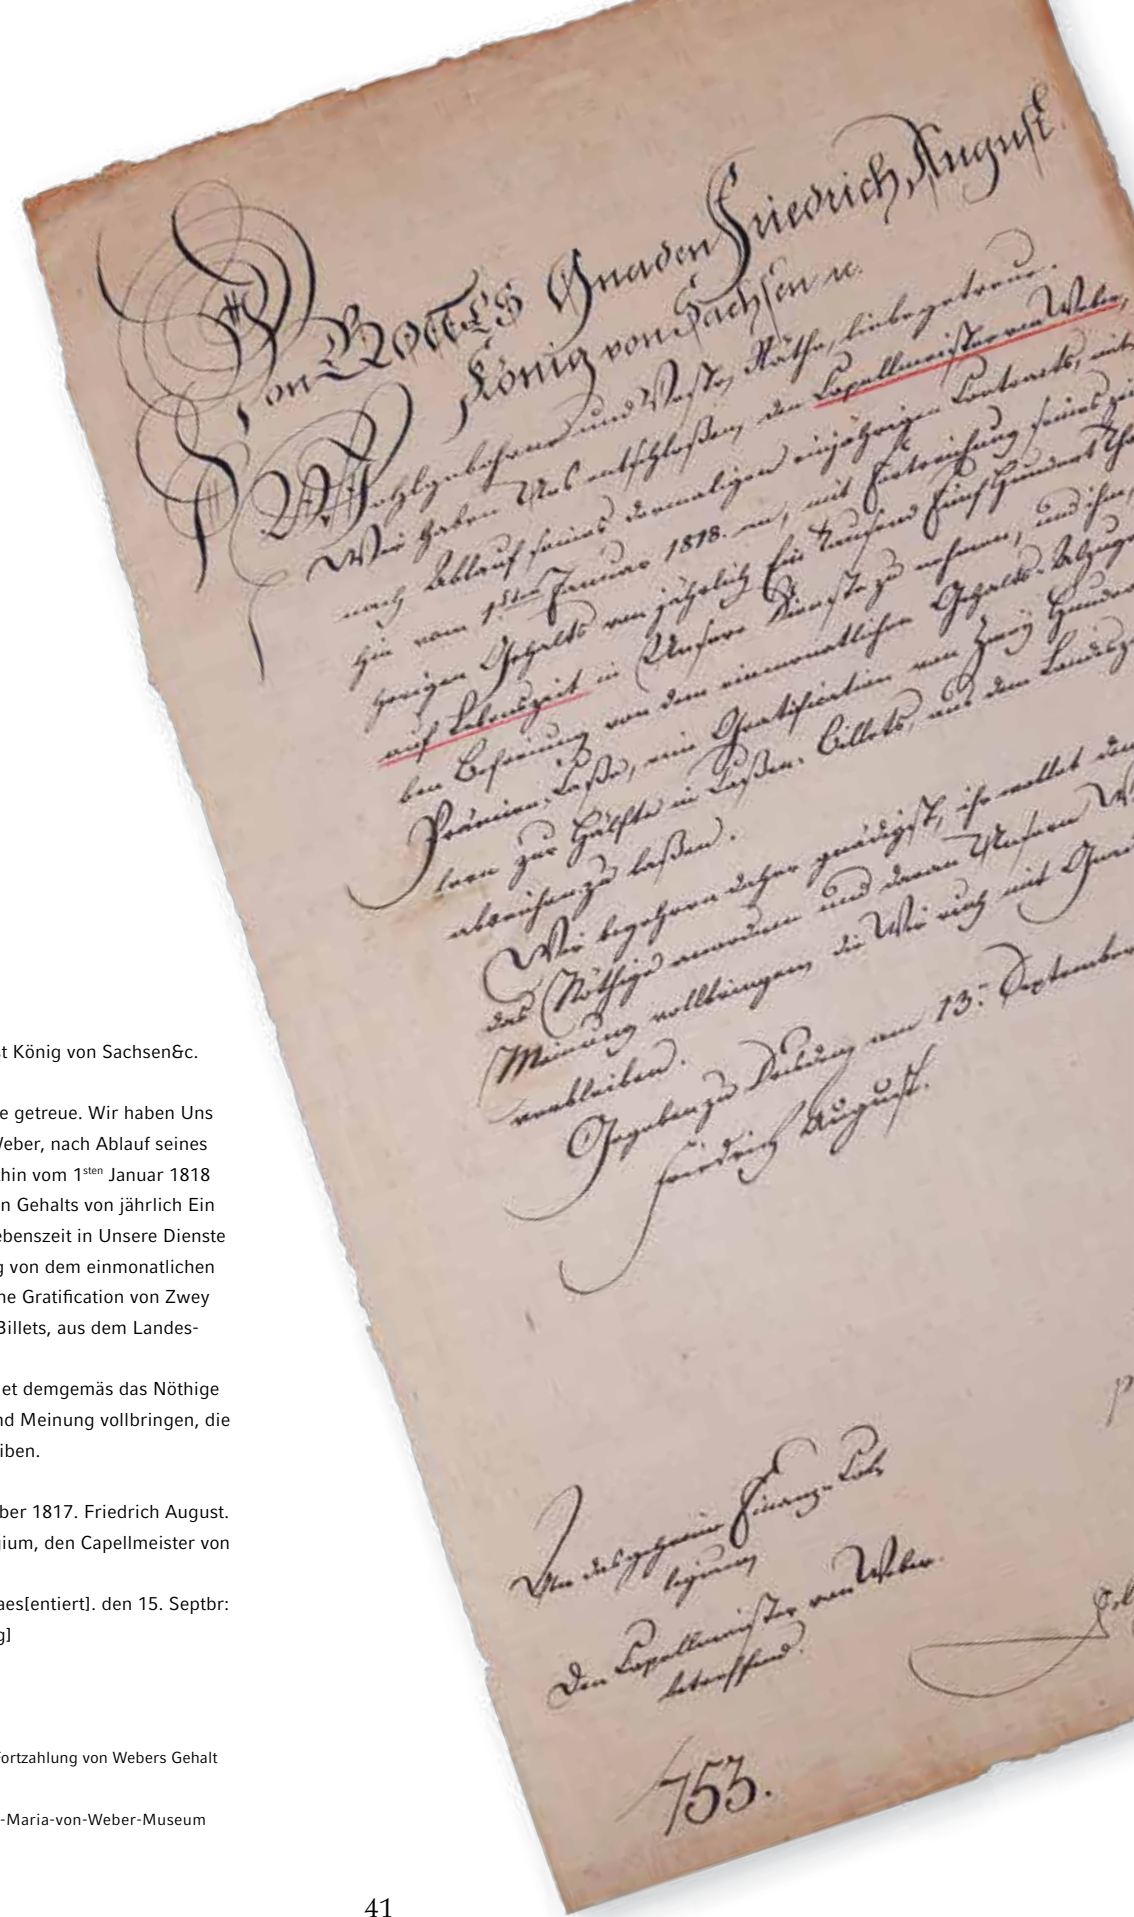 Von GOTTES Gnaden Friedrich August
König von Sachsen &c.
Wohlgebohrne und Veste, Räthe, liebe getreue.
Wir haben Uns entschloßen, den Capellmeister von Weber,
nach Ablauf seines dermaligen einjährigen Contracts, mit
hin vom 1sten Januar 1818. an, mit Fortreichung seines zei
herigen Gehalts von jährlich Ein Tausend Fünf Hundert Tha
auf Lebenszeit in Unsere Dienste zu nehmen, und ihm,
ben Befreiung von dem einmonatlichen Gehalts-Abzuge
Prämien-Caße, eine Gratification von Zwey Hunder
lern zur Hälfte in Caßen-Billets, aus dem Landesz
abreichen zu laßen.
Wir begehren daher gnädigst, ihr wollet dem
das Nöthige anordnen und daran Unsern Wi
Meinung vollbringen, die Wir euch mit Gnad
verbleiben.
Gegeben zu Dresden, am 13. September
Friedrich August.
An das geheime Finanz-Col-
legium,
Den Capellmeister von Weber
betreffend.
753.
st König von Sachsen&c.
e getreue. Wir haben Uns
Weber, nach Ablauf seines
thin vom 1sten Januar 1818
n Gehalts von jährlich Ein
ebenszeit in Unsere Dienste
g von dem einmonatlichen
ne Gratification von Zwey
Billets, aus dem Landes-
et demgemäs das Nöthige
nd Meinung vollbringen, die
iben.
ber 1817. Friedrich August.
gium, den Capellmeister von
aes[entiert]. den 15. Septbr:
g]
Fortzahlung von Webers Gehalt
-Maria-von-Weber-Museum
41